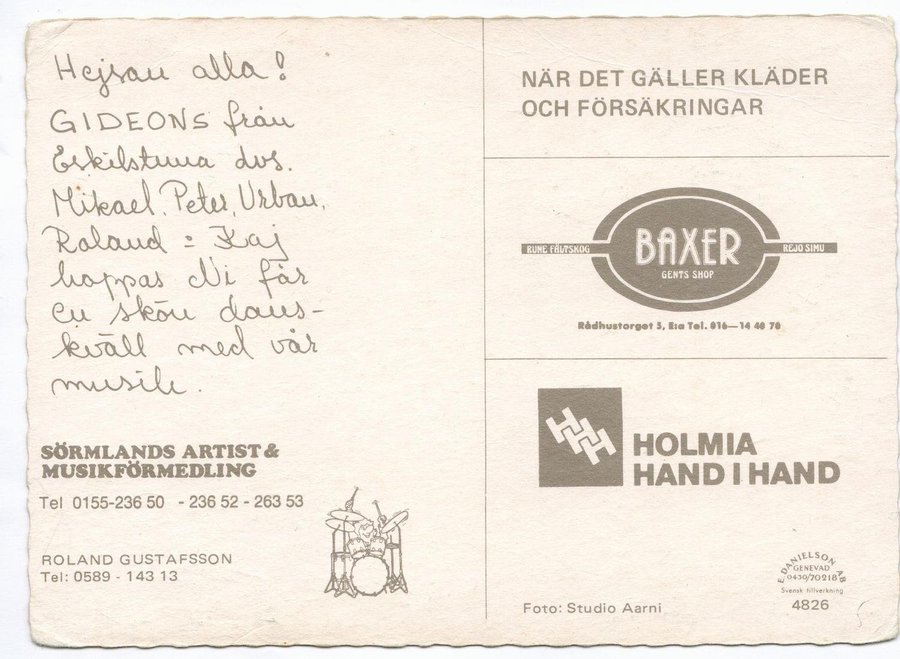 Hejsan alla!
GIDEONS från
Eskilstuna dvs.
Mikael, Peter, Urban,
Roland = Kaj
hoppas Ni får
en skön dans-
kväll med vår
musik.
SÖRMLANDS ARTIST &
MUSIKFÖRMEDLING
Tel 0155-236 50 - 236 52 - 263 53
ROLAND GUSTAFSSON
Tel: 0589 - 143 13
NÄR DET GÄLLER KLÄDER
OCH FÖRSÄKRINGAR
RUNE FÄLTSKOG
BAXER
GENTS SHOP
REJO SIMU
Rådhustorget 5, E:a Tel. 016—14 48 78
HOLMIA
HAND I HAND
Foto: Studio Aarni
E. DANIELSON AB
GENEVAD
0430/70218
Svensk tillverkning
4826